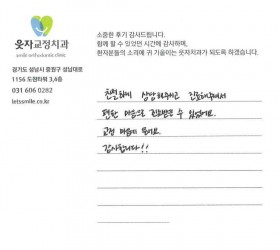 웃자교정치과
smile orthodontic clinic
경기도 성남시 중원구 성남대로
1156 도원타워 3,4층
031 606 0282
letssmile.co.kr
소중한 후기 감사드립니다.
함께 할 수 있었던 시간에 감사하며,
환자분들의 소리에 귀 기울이는 웃자치과가 되도록 하겠습니다.
친절하게 상담해주시고 진료해주셔서
편한 마음으로 진료받을 수 있었어요.
교정 마음에 들어요.
감사합니다!!